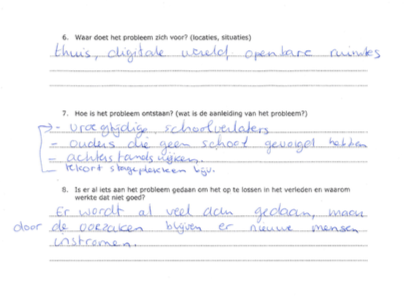 6. Waar doet het probleem zich voor? (locaties, situaties)
thuis, digitale wereld, openbare ruimtes
7. Hoe is het probleem ontstaan? (wat is de aanleiding van het probleem?)
- vroegtijdige schoolverlaters
- ouders die geen school gevolgd hebben
- achterstandswijken.
tekort stageplekken bijv.
8. Is er al iets aan het probleem gedaan om het op te lossen in het verleden en waarom
werkte dat niet goed?
Er wordt al veel aan gedaan, maar
door de oorzaken blijven er nieuwe mensen
instromen.